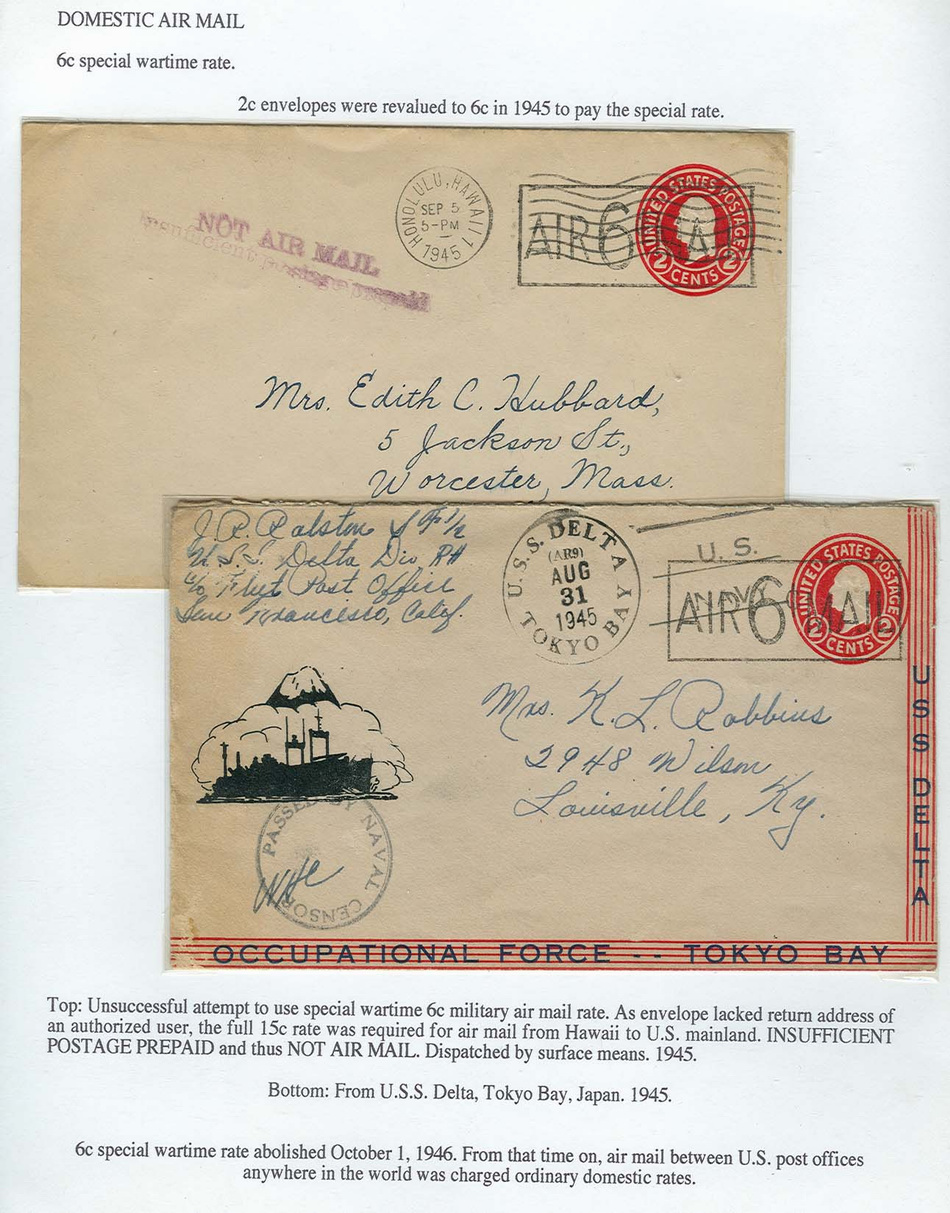 DOMESTIC AIR MAIL
6c special wartime rate.
2c envelopes were revalued to 6c in 1945 to pay the special rate.
HONOLULU, HAWAII 1
SEP 5
5-PM
1945
AIR 6c MAIL
UNITED STATES POSTAGE
2 CENTS 2
NOT AIR MAIL
Insufficient postage prepaid
Mrs. Edith C. Hubbard,
5 Jackson St.,
Worcester, Mass.
J. R. Ralston
U.S.S. Delta Div.
c/o Fleet Post Office
San Francisco, Calif.
U.S.S. DELTA
(AR9)
AUG
31
1945
TOKYO BAY
U. S.
NAVY
AIR 6c MAIL
UNITED STATES POSTAGE
2 CENTS 2
Mrs. K. L. Robbins
2948 Wilson
Louisville, Ky.
PASSED BY NAVAL CENSOR
USS DELTA
OCCUPATIONAL FORCE -- TOKYO BAY
Top: Unsuccessful attempt to use special wartime 6c military air mail rate. As envelope lacked return address of
an authorized user, the full 15c rate was required for air mail from Hawaii to U.S. mainland. INSUFFICIENT
POSTAGE PREPAID and thus NOT AIR MAIL. Dispatched by surface means. 1945.
Bottom: From U.S.S. Delta, Tokyo Bay, Japan. 1945.
6c special wartime rate abolished October 1, 1946. From that time on, air mail between U.S. post offices
anywhere in the world was charged ordinary domestic rates.